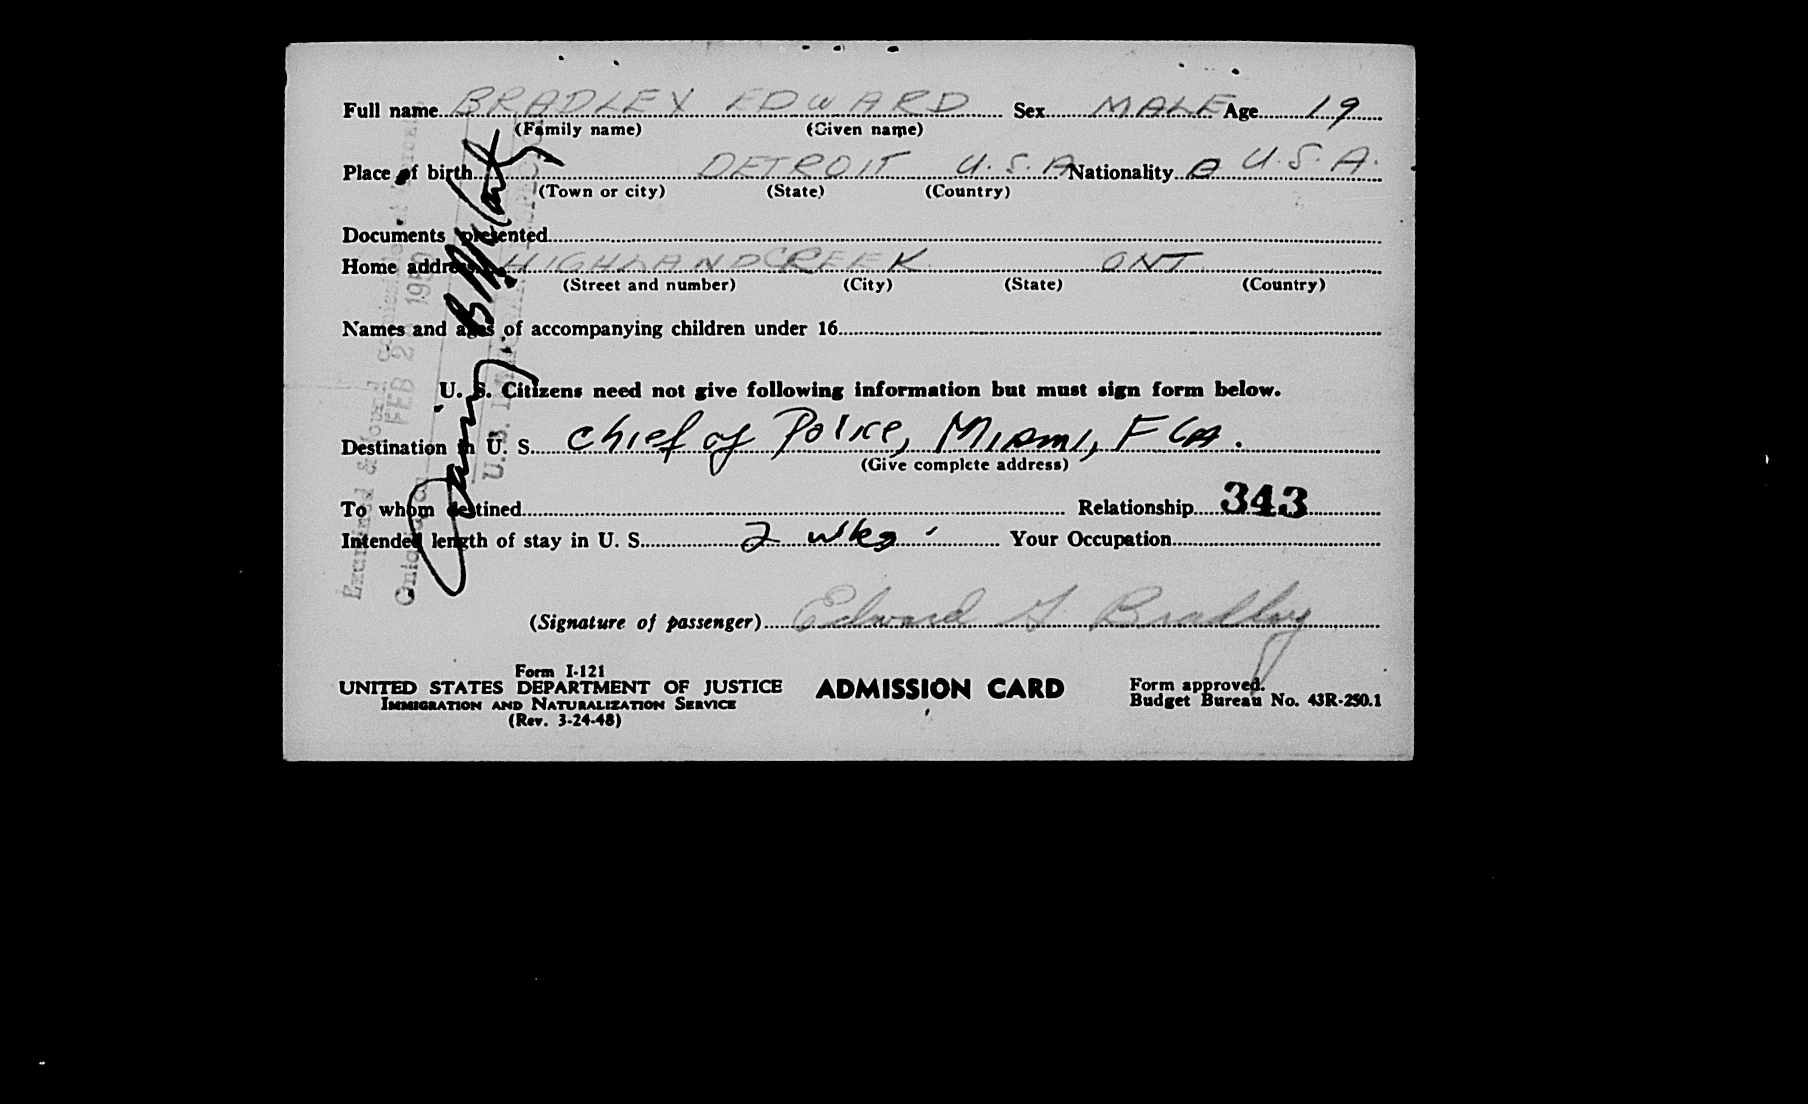 Full name BRADLEY EDWARD Sex MALE Age 19
(Family name) (Given name)
Place of birth DETROIT U.S.A Nationality U.S.A.
(Town or city) (State) (Country)
Documents presented
Home address HIGHLAND CREEK ONT
(Street and number) (City) (State) (Country)
Names and ages of accompanying children under 16
U. S. Citizens need not give following information but must sign form below.
Destination in U. S. Chief of Police, Miami, FLA.
(Give complete address)
To whom destined Relationship 343
Intended length of stay in U. S. 2 wks Your Occupation
(Signature of passenger) Edward G Bradley
Form I-121
UNITED STATES DEPARTMENT OF JUSTICE ADMISSION CARD Form approved.
IMMIGRATION AND NATURALIZATION SERVICE Budget Bureau No. 43R-250.1
(Rev. 3-24-48)
Examined &
FEB 2 195
U.S.